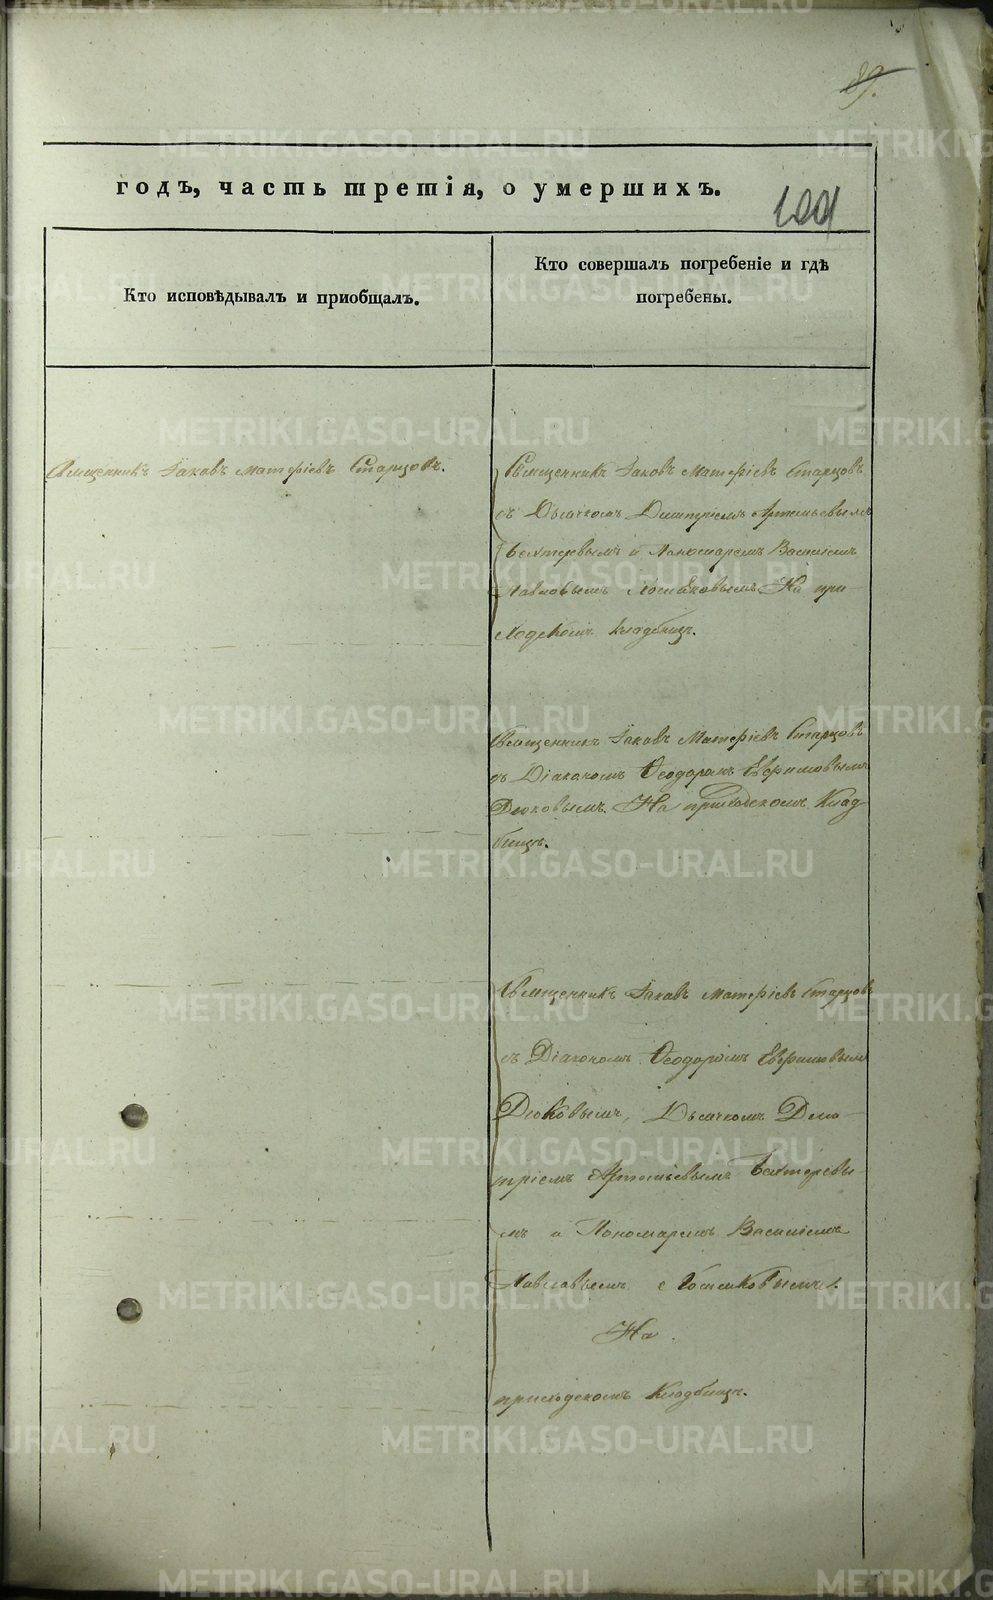 89.
годъ, часть третія, о умершихъ.
Кто исповѣдывалъ и приобщалъ.
Кто совершалъ погребеніе и гдѣ
погребены.
Священникъ Іаковъ Матѳіевъ Старцовъ.
Священникъ Іаковъ Матѳіевъ Старцовъ
съ Дьячкомъ Димитріемъ Артемьевымъ
Бехтеревымъ и Пономаремъ Василіемъ
Павловымъ На при-
ходскомъ кладбищѣ.
Священникъ Іаковъ Матѳіевъ Старцовъ
съ Діакономъ Ѳеодоромъ Евфимовымъ
Дюковымъ. На приходскомъ Клад-
бищѣ.
Священникъ Іаковъ Матѳіевъ Старцовъ
съ Діакономъ Ѳеодоромъ Евфимовымъ
Дюковымъ, Дьячкомъ Дими-
тріемъ Артемьевымъ Бехтеревы-
мъ и Пономаремъ Василіемъ
Павловымъ
На
приходскомъ Кладбищѣ.
METRIKI.GASO-URAL.RU